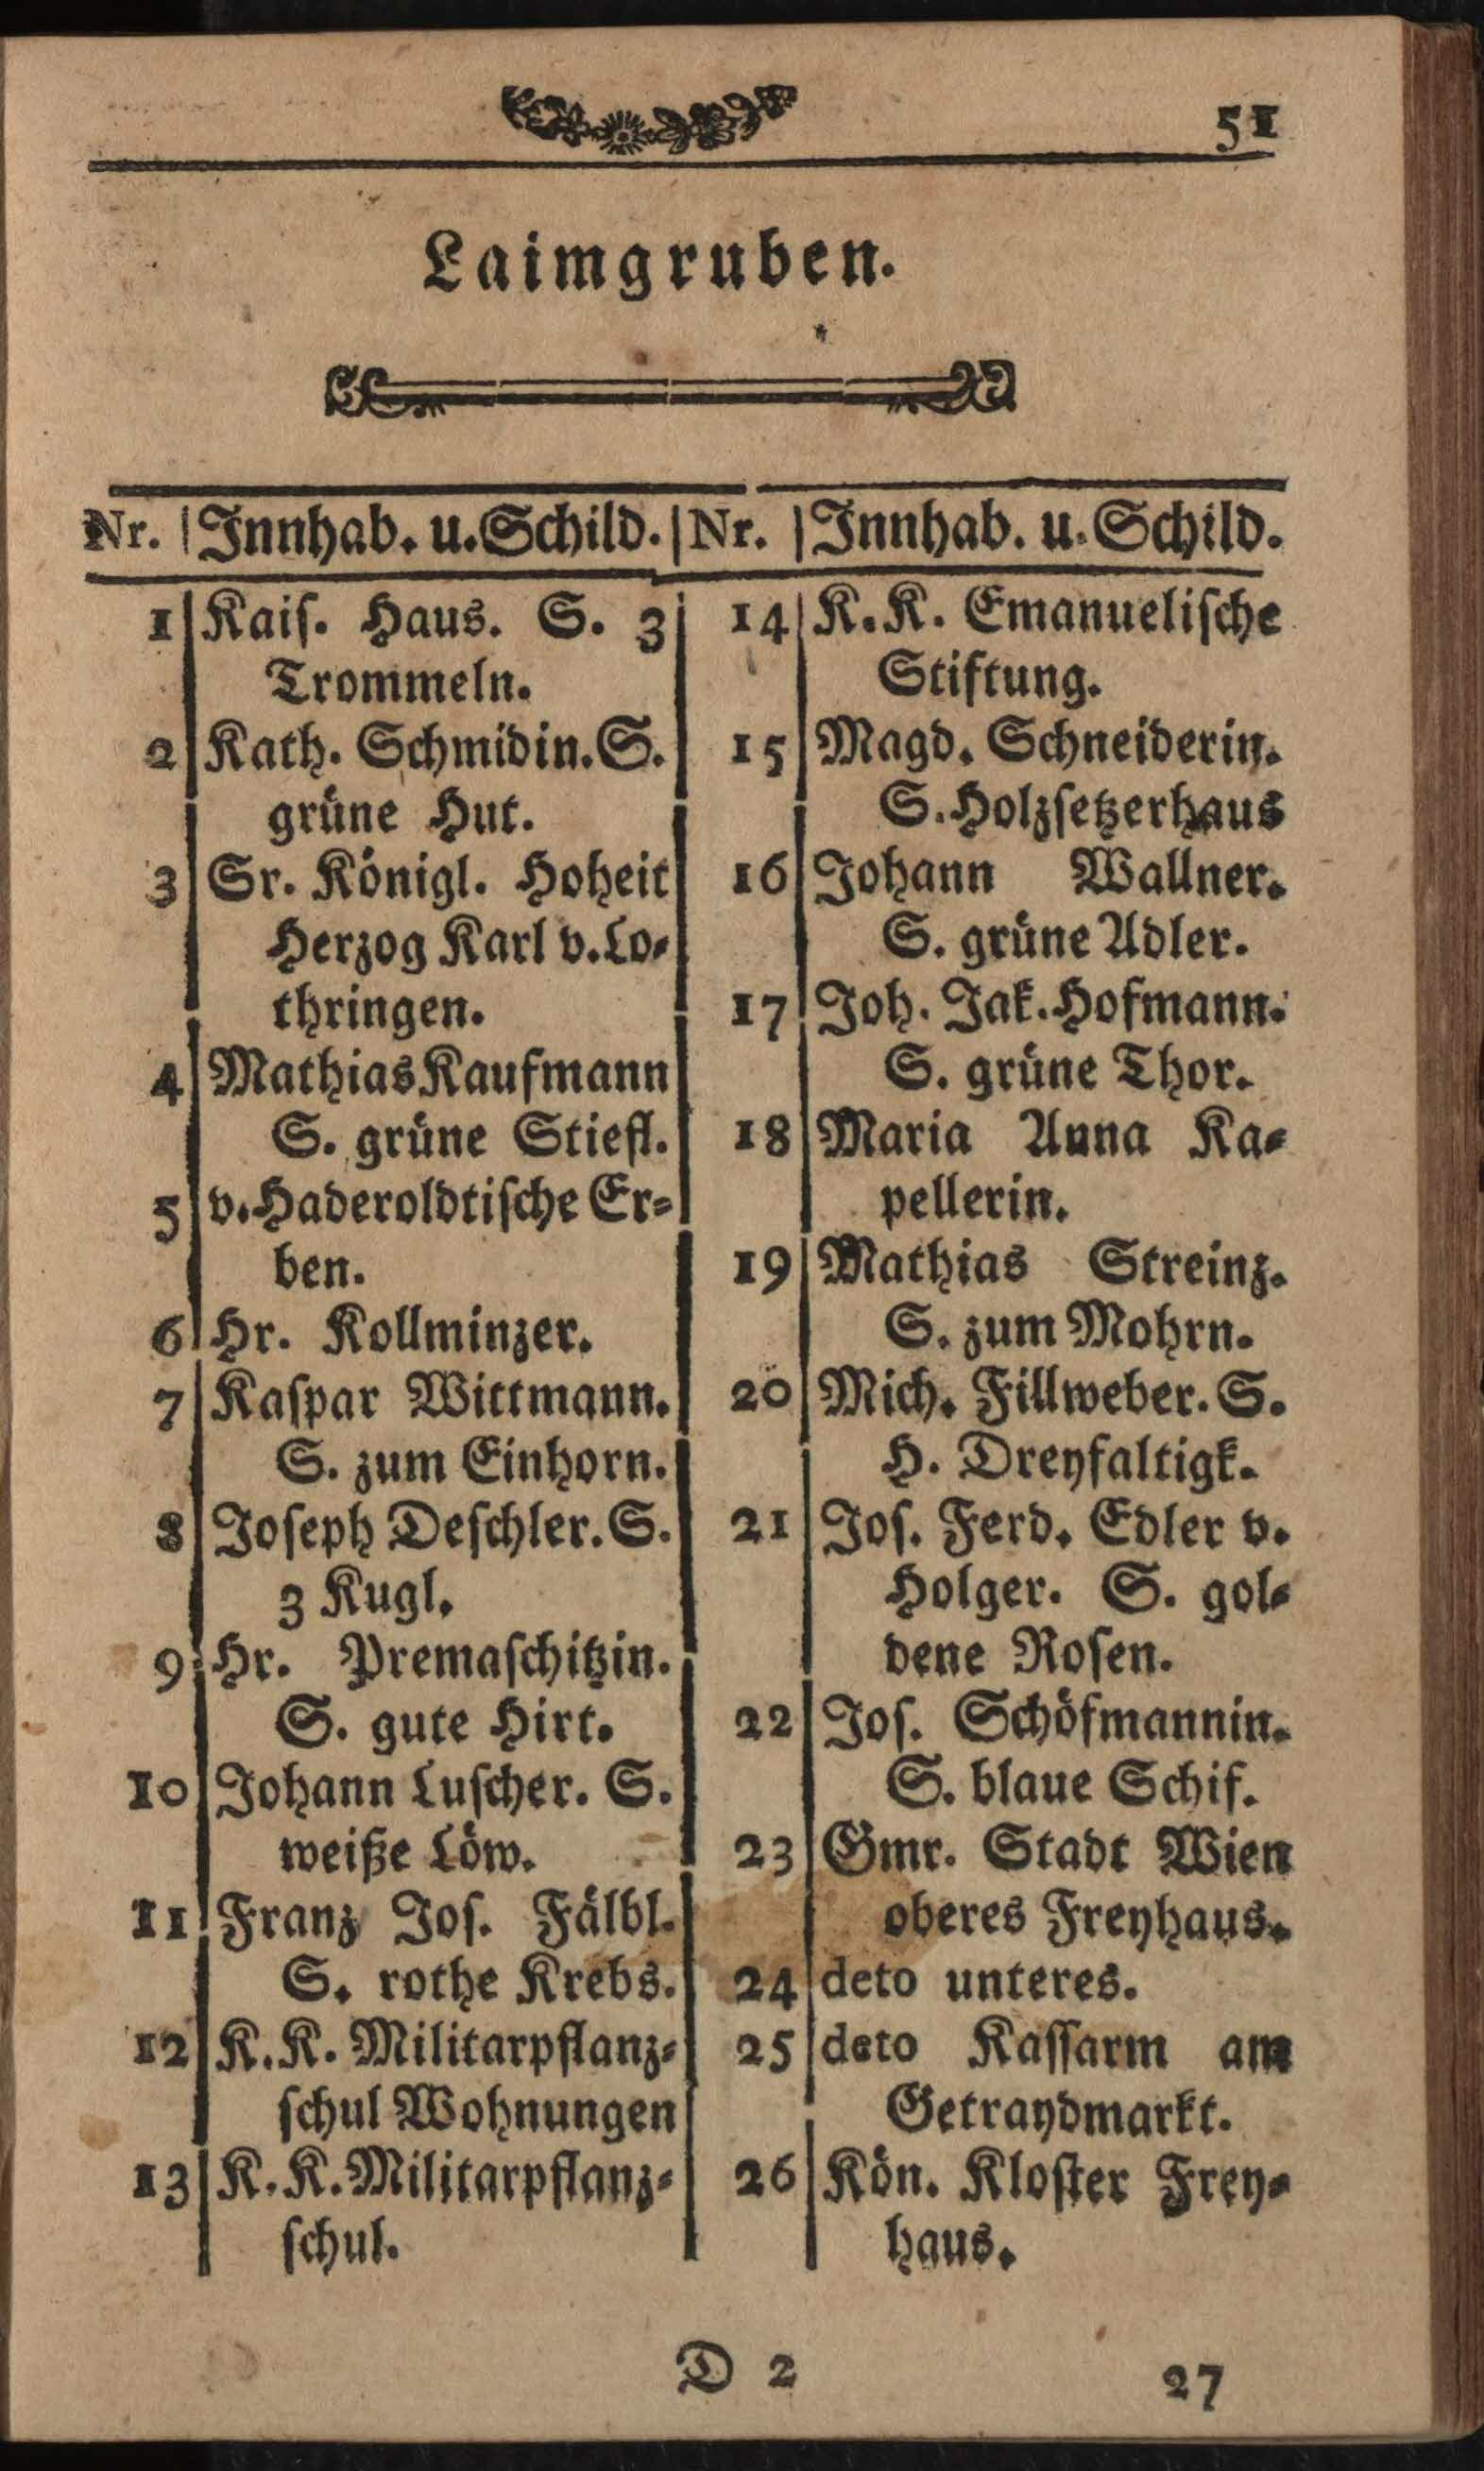 51
Laimgruben.
Nr. Innhab. u. Schild.
1 Kais. Haus. S. 3
Trommeln.
2 Kath. Schmidin. S.
grüne Hut.
3 Sr. Königl. Hoheit
Herzog Karl v. Lo-
thringen.
4 Mathias Kaufmann
S. grüne Stiefl.
5 v. Haderoldtische Er-
ben.
6 Hr. Kollminzer.
7 Kaspar Wittmann.
S. zum Einhorn.
8 Joseph Deschler. S.
3 Kugl.
9 Hr. Premaschitzin.
S. gute Hirt.
10 Johann Luscher. S.
weiße Löw.
11 Franz Jos. Fälbl.
S. rothe Krebs.
12 K. K. Militarpflanz-
schul Wohnungen
13 K. K. Militarpflanz-
schul.
Nr. Innhab. u. Schild.
14 K. K. Emanuelische
Stiftung.
15 Magd. Schneiderin.
S. Holzsetzerhaus
16 Johann Wallner.
S. grüne Adler.
17 Joh. Jak. Hofmann.
S. grüne Thor.
18 Maria Anna Ka-
pellerin.
19 Mathias Streinz.
S. zum Mohrn.
20 Mich. Fillweber. S.
H. Dreyfaltigk.
21 Jos. Ferd. Edler v.
Holger. S. gol-
dene Rosen.
22 Jos. Schöfmannin.
S. blaue Schif.
23 Gmr. Stadt Wien
oberes Freyhaus.
24 deto unteres.
25 deto Kassarm am
Getraydmarkt.
26 Kön. Kloster Frey-
haus.
D 2
27